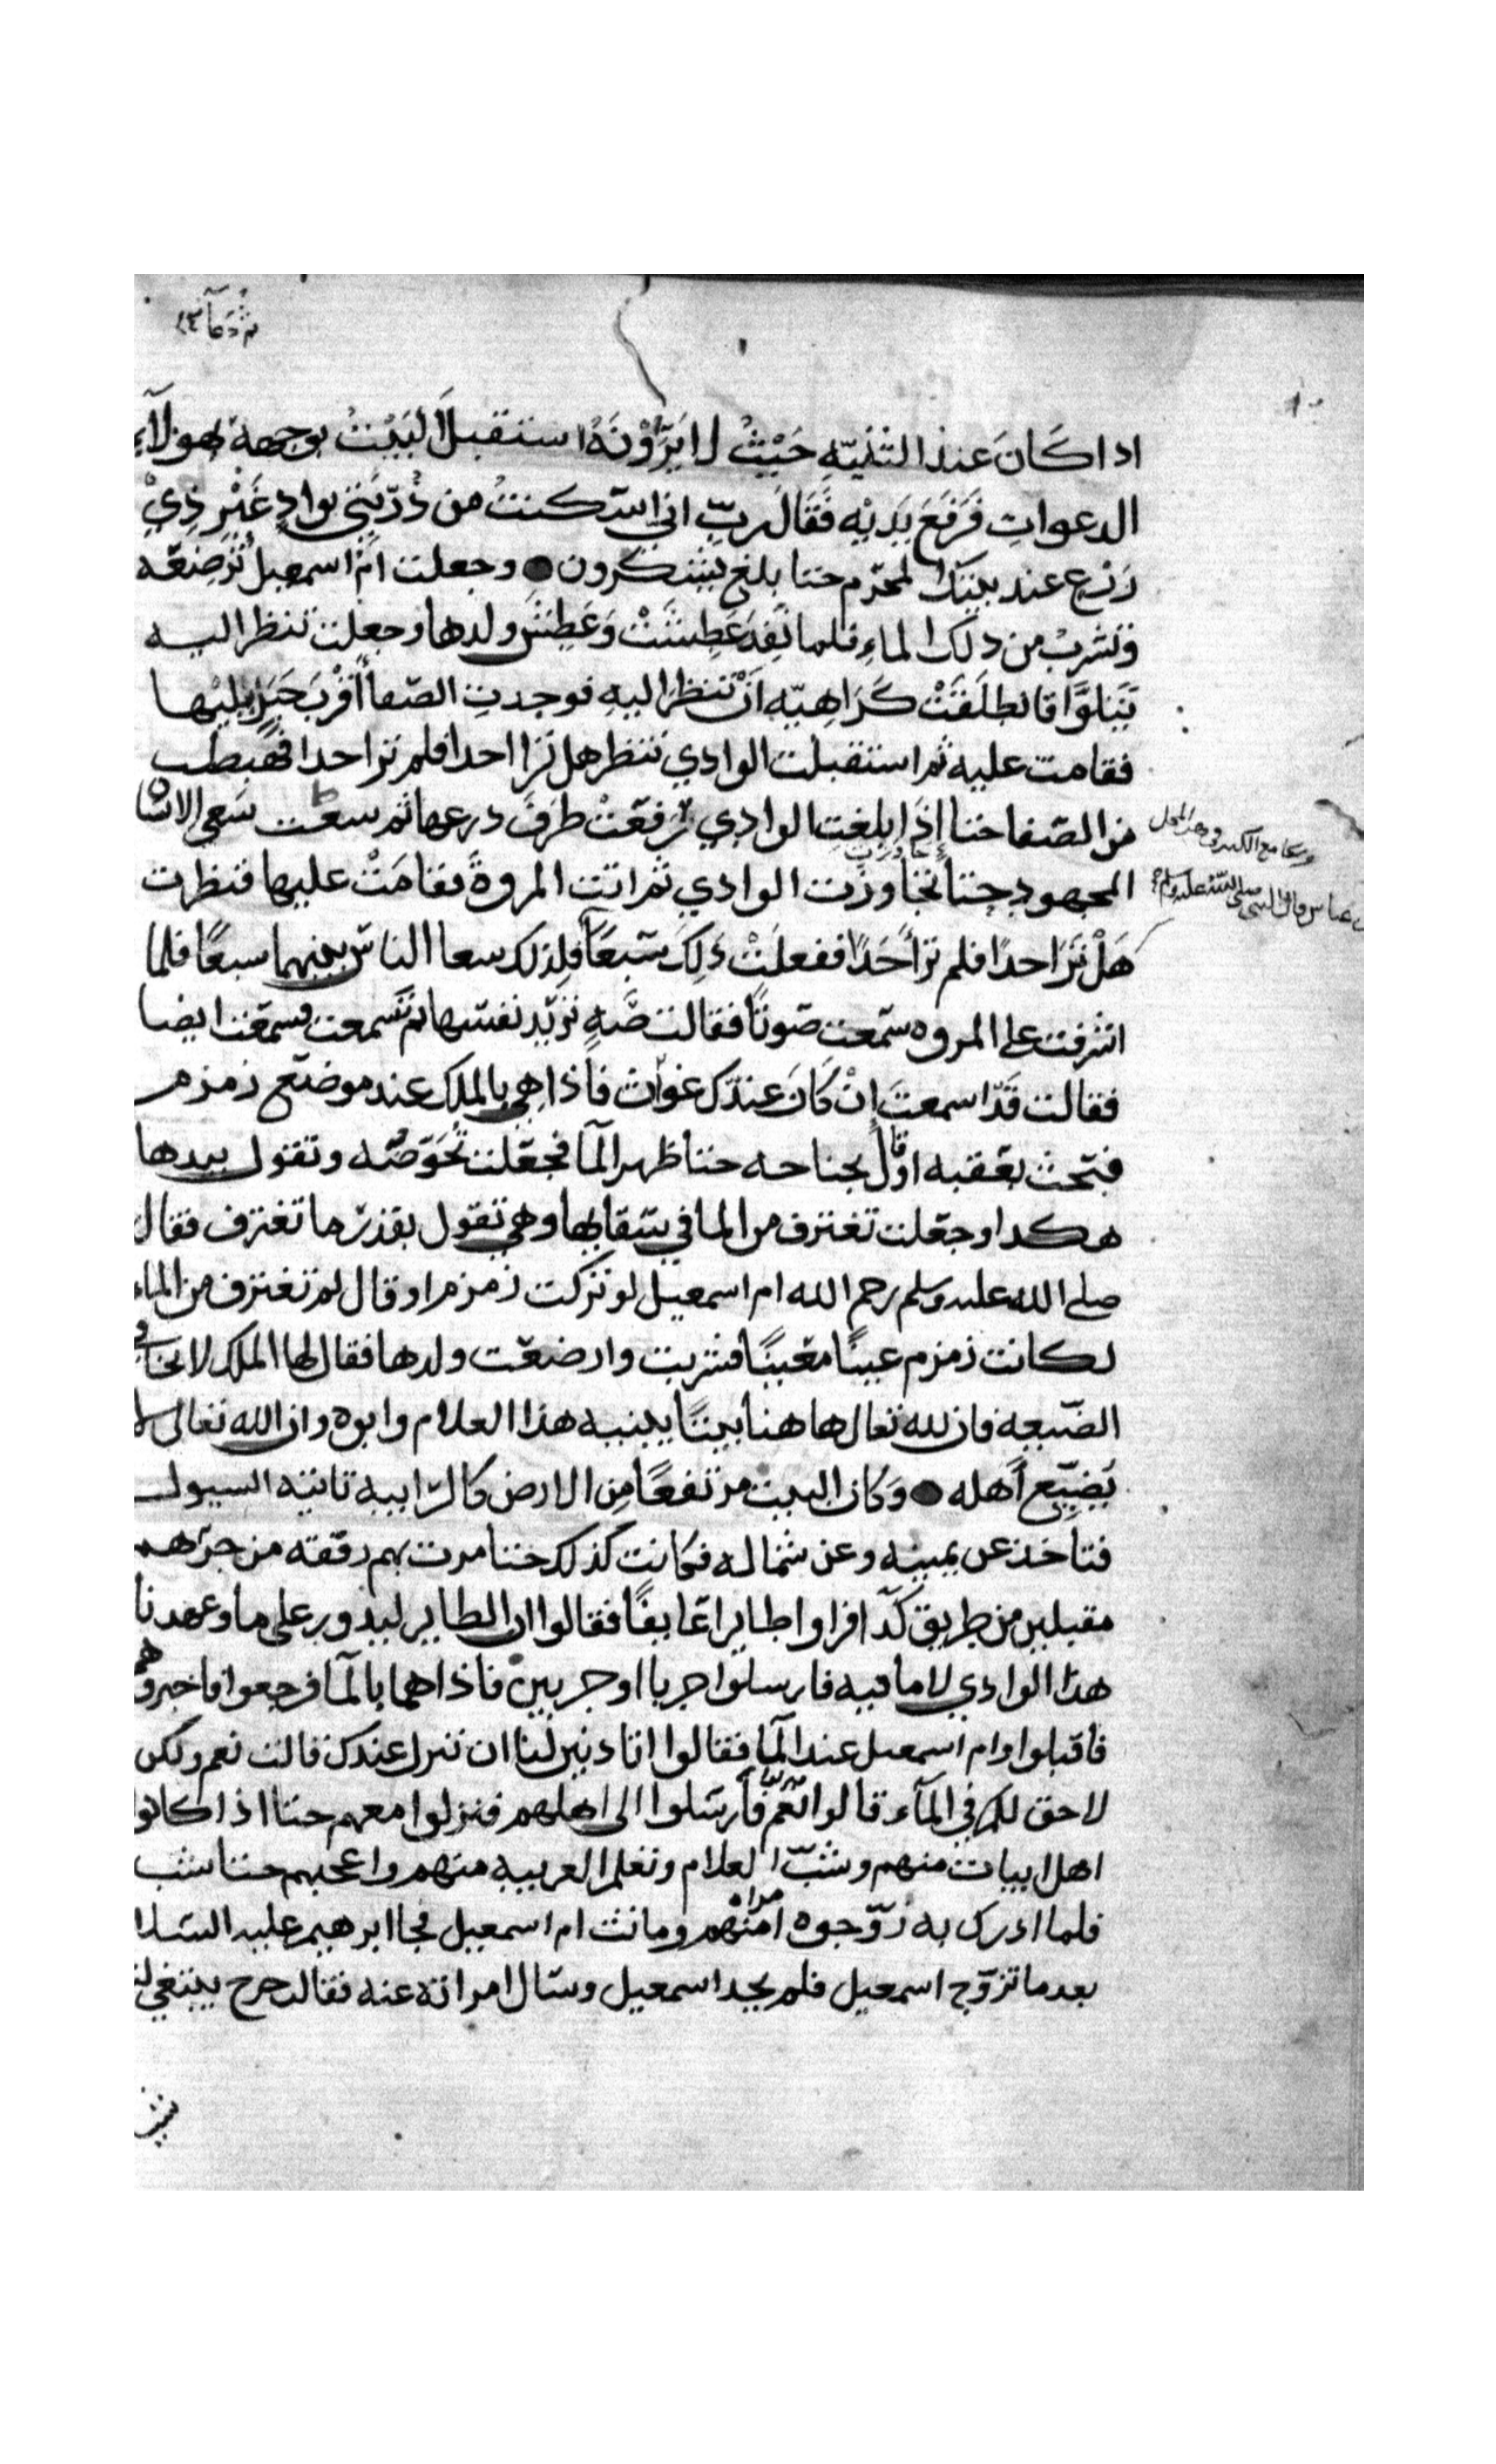 ثم دعا
اذا كَانَ عند الثنيّهِ حَيْثُ لا يَرَوْنَهُ استقبلَ البَيْتَ بوجهه بهولآء
الدعواتِ فَرَفَعَ يَدَيْهِ فَقَالَ ربِّ اني اسكنتُ من ذُرّيتي بوادٍ غَيْرِ ذِيْ
زرعٍ عند بيتك المحرّم حتا بلغ يشكرون وجعلت امُّ اسمعيل تُرضعّه
وتشربُ من ذلك الماءِ فلما نَفِدَ عَطِشَتْ وَعَطِشَ ولدها وجعلت تنظر اليه
يَتَلوَّا فانطلَقَتْ كَرَاهِيّه أنْ تنظر اليهِ فوجدتِ الصّفا أقْربَ جَبَلٍ يليْها
فقامت عليه ثم استقبلت الوادي تنظر هل ترا احدا فلم ترا احدا فهبطت
من الصّفا حتا إذَا بلغتِ الوادي رَفعّتْ طرَفَ درعها ثم سعت سَعي الانسا
المجهودِ حتا تجاوزت الوادي ثم اتت المروةَ فقامَتْ عليها فنظرت
عباس قال النبي صلى الله عليه وسلم
هَلْ تَرَا احدًا فلم ترَ أَحَدًا ففعلَتْ ذلِكَ سَبعَاً فلِذلك سعا الناسُ بينهما سبعًا فلما
اشرفت على المروه سّمعت صَوتًا فقالت صَّهٍ تريّد نفسّها ثم تسّمعت فسمعّت ايضا
فقالت قَدّ اسمعتَ إنْ كَانَ عندّك غواث فاذا هي بالملك عند موضع زمزم
فبَحث بعَقبه او قال بجناحه حتا ظهر المآ فجعّلت تُحَوّضّه وتقول بيدها
هكدا وجعّلت تغترف من الما في سّقايها وهي تقول بقدرّ ما تغترف فقال
صلى الله عليه وسلم رحم الله ام اسمعيل لو تركت زمزم او قال لو لم تغترف من الماء
لكانت زمزم عينًا معّينًا فشربت وارضعّت ولدها فقال لها الملك لا تخافي
الضّيعه فان لله تعال ها هنا بيتًا يبنيه هذا الغلام وابوه وان الله تعالى لا
يُضيّع أهله وَكان البيت مرتفعًا مِن الارض كالرّابيه تاتيه السيول
فتاخذ عن يمينه وعن شماله فكانت كذلك حتا مرت بهم رفقته من جرّهم
مقبلين من طريق كدآ فراوا طايرا عّايفًا فقالوا ان الطاير ليدور على ما وعهدنا
هذا الوادي لاما فيه فارسلوا جريا او جريين فاذا هما بالمآ فرجعوا فاخبروهم
فاقبلوا وام اسمعيل عند المآ فقالوا اتادنين لنا ان ننزل عندك قالت نعم ولكن
لا حق لكم في المآء قالوا نعّم فأرسّلوا الى اهلهم فنزلوا معهم حتا اذا كانوا
اهل ابيات منهم وشبّ الغلام وتعلم العربيه منهم واعجبهم حتا شب
فلما ادرك به زوّجوه امراه منهم وماتت ام اسمعيل فجا ابرهيم عليه السّلا
بعد ما تزوّج اسمعيل فلم يجد اسمعيل وسّال امراته عنه فقالت خرج يبتغي لنا